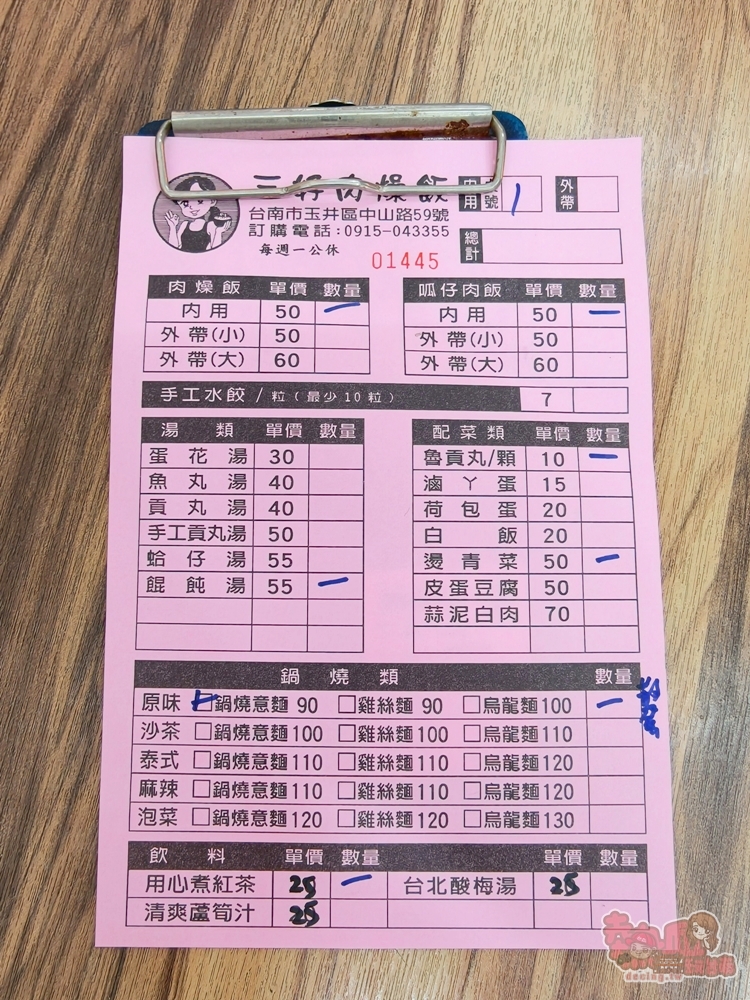 三好肉燥飯 內用 桌號 1 外帶
台南市玉井區中山路59號
訂購電話:0915-043355 總計
每週一公休 01445
肉燥飯 單價 數量 呱仔肉飯 單價 數量
內用 50 一 內用 50 一
外帶(小) 50 外帶(小) 50
外帶(大) 60 外帶(大) 60
手工水餃/粒(最少10粒) 7
湯類 單價 數量 配菜類 單價 數量
蛋花湯 30 魯貢丸/顆 10 一
魚丸湯 40 滷丫蛋 15
貢丸湯 40 荷包蛋 20
手工貢丸湯 50 白飯 20
蛤仔湯 55 燙青菜 50 一
餛飩湯 55 一 皮蛋豆腐 50
蒜泥白肉 70
鍋燒類 數量
原味 □鍋燒意麵 90 □雞絲麵 90 □烏龍麵100 一
沙茶 □鍋燒意麵100 □雞絲麵100 □烏龍麵110
泰式 □鍋燒意麵110 □雞絲麵110 □烏龍麵120
麻辣 □鍋燒意麵110 □雞絲麵110 □烏龍麵120
泡菜 □鍋燒意麵120 □雞絲麵120 □烏龍麵130
飲料 單價 數量 單價 數量
用心煮紅茶 25 一 台北酸梅湯 25
清爽蘆筍汁 25